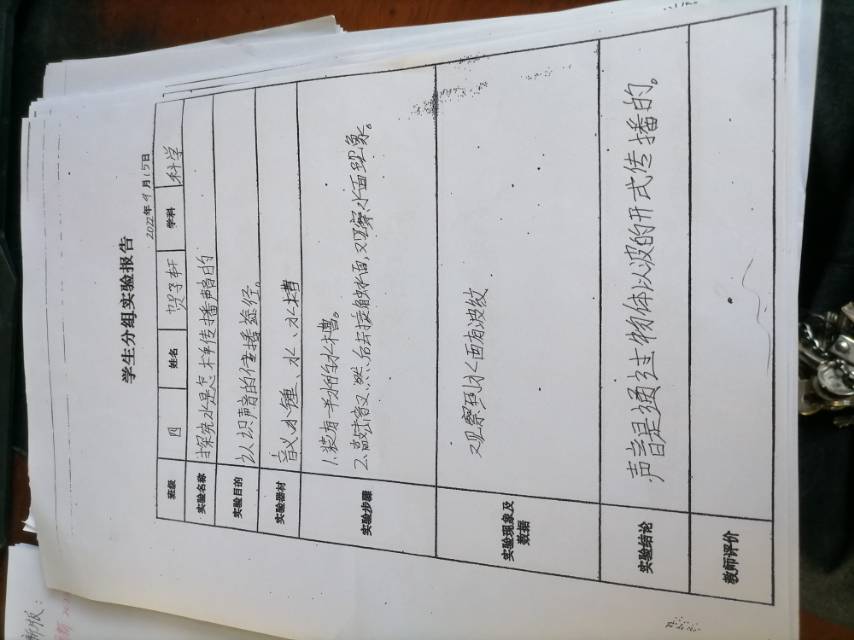 学生分组实验报告
2022年9月15日
班级 四 姓名 贺子轩 学科 科学
实验名称 探究水是怎样传播声音的
实验目的 认识声音的传播途径。
实验器材 音叉、水锤、水、水槽
实验步骤 1.装有半水的水槽。
2.敲击音叉,然后去接触水面,观察水面现象。
实验现象及数据 观察到水面有波纹
实验结论 声音是通过物体以波的形式传播的。
教师评价